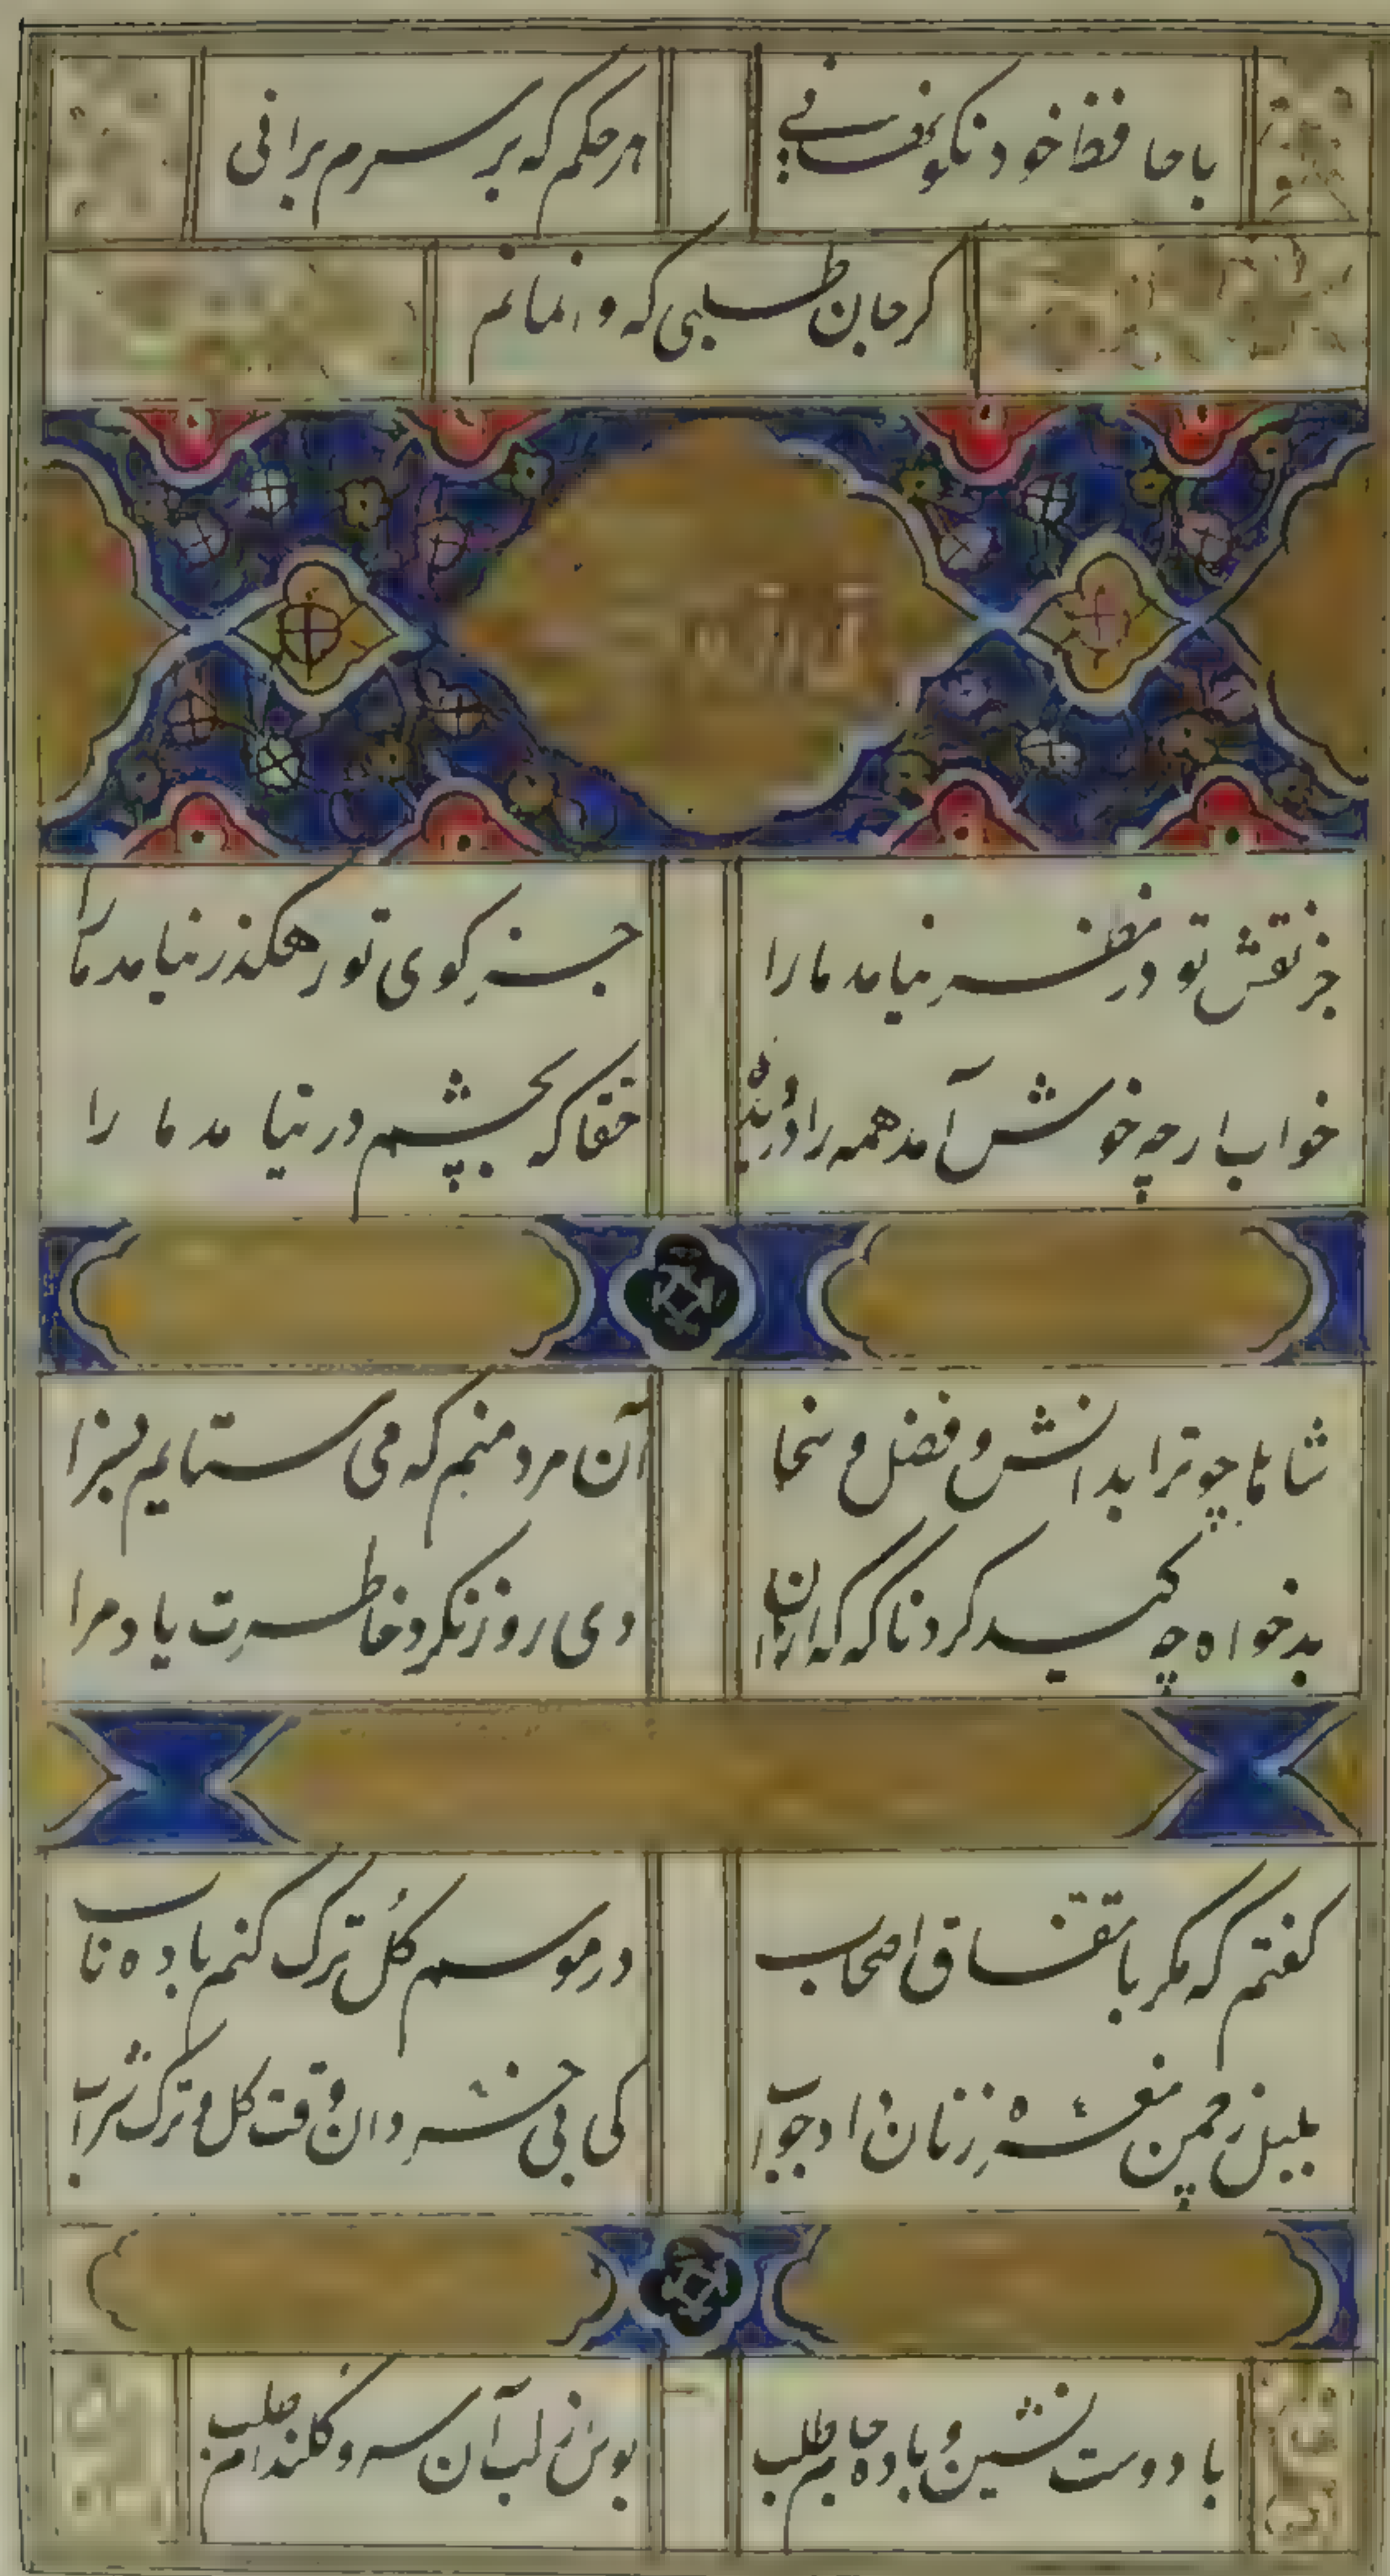 با حافظ خود نکو نقانی هر حکم که بر سرم برانی
کر جان طلبی که وانمانم
جز نقش تو در نظر نیامد ما را جز کوی تو رهکذر نیامد ما را
خواب ارچه خوش آمد همه را در حقا که بچشم در نیامد ما را
شاها چو ترا بدانش و فضل و سخا آن مرد منم که می ستایم بسزا
بدخواه چه کید کرد ناکه که ازان دی روز نکرد خاطرت یاد مرا
کفتم که مکر باتفاق اصحاب در موسم کل ترک کنم باده ناب
بلبل ز چمن نعره زنان داد جواب کی بی خبران وقت کل و ترک شراب
با دوست نشین و باده جام طلب بوس ز لب آن سرو کلندام طلب